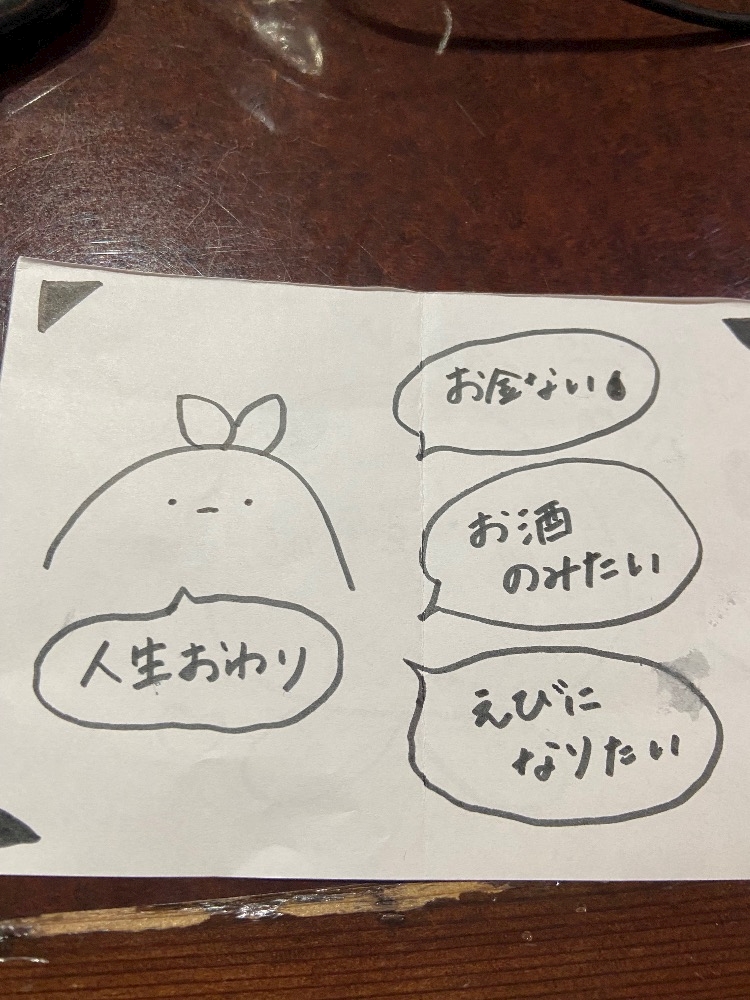 お金ない
お酒
のみたい
人生おわり
えびに
なりたい